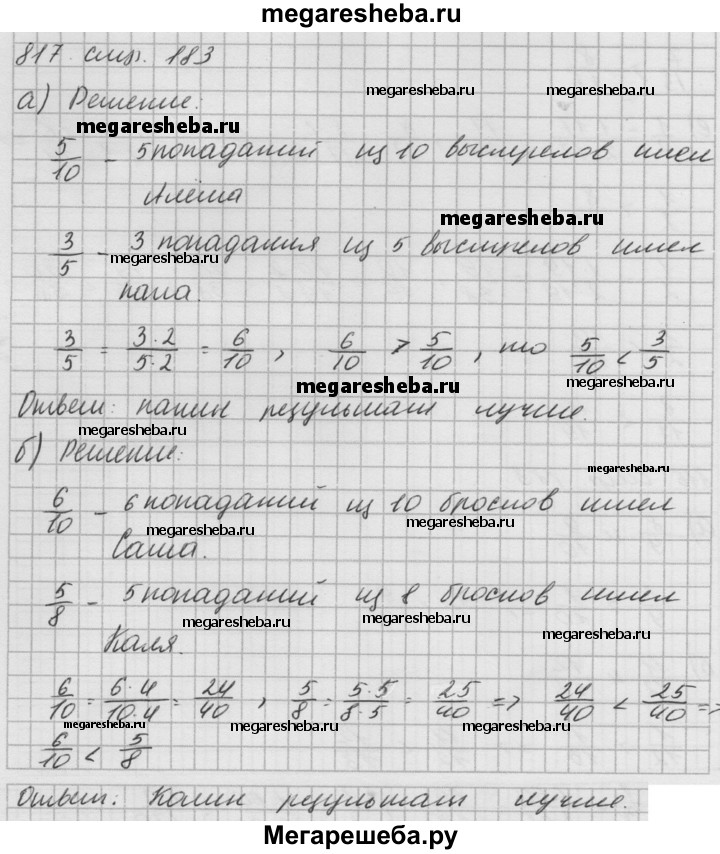 megaresheba.ru
817 стр. 183
а) Решение:
megaresheba.ru
megaresheba.ru
megaresheba.ru
5/10 - 5 попаданий из 10 выстрелов имел
Алёша
megaresheba.ru
3/5 - 3 попадания из 5 выстрелов имел
megaresheba.ru
папа.
3/5 = 3·2/5·2 = 6/10, 6/10 > 5/10, то 5/10 < 3/5
megaresheba.ru
megaresheba.ru
Ответ: папин результат лучше.
megaresheba.ru
б) Решение:
megaresheba.ru
6/10 - 6 попаданий из 10 бросков имел
megaresheba.ru
megaresheba.ru
Саша.
5/8 - 5 попаданий из 8 бросков имел
megaresheba.ru
megaresheba.ru
megaresheba.ru
megaresheba.ru
Коля.
6/10 = 6·4/10·4 = 24/40, 5/8 = 5·5/8·5 = 25/40 => 24/40 < 25/40 =>
megaresheba.ru
megaresheba.ru
megaresheba.ru
6/10 < 5/8
Ответ: Колин результат лучше.
Мегарешеба.ру